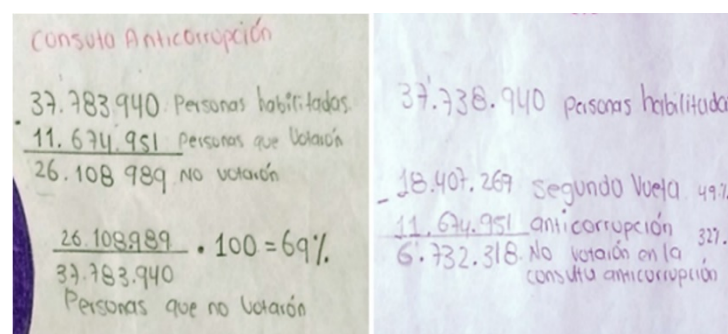 Consulta Anticorrupción
37.783940 Personas habilitadas.
- 11.674.951 Personas que Votarón
26.108 989 No votarón
26.108.989 · 100 = 69%
37.783.940
Personas que no Votarón
37.738.940 personas habilitada
- 18.407.269 Segunda Vuelta 49%
11.674.951 anticorrupción 32%.
6.732.318. No votarón en la
consulta anticorrupción